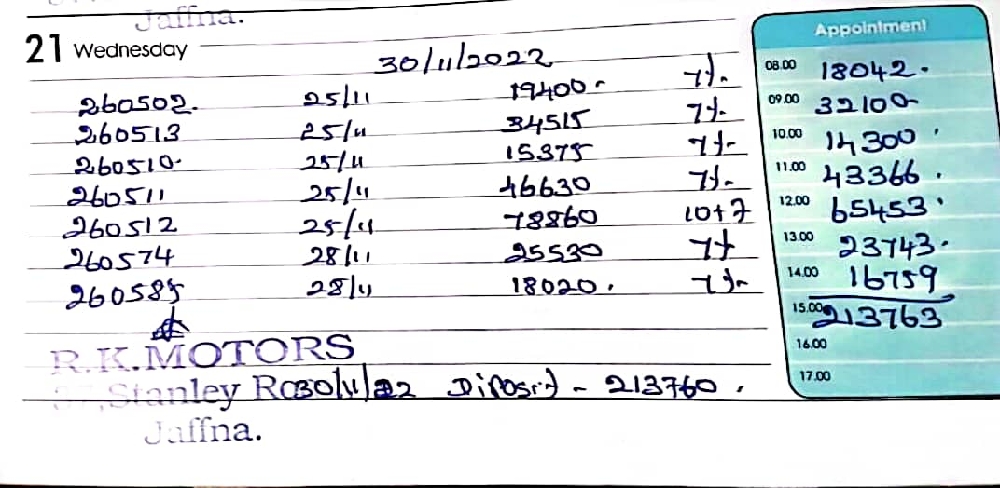 Jaffna.
Appointment
21 Wednesday
30/11/2022
260502. 25/11 19400 7%. 08.00 18042.
260513 25/11 34515 7%. 09.00 32100
260510. 25/11 15375 7%. 10.00 14300
260511 25/11 46630 7%. 11.00 43366.
260512 25/11 78860 10+7 12.00 65453.
260574 28/11 25530 7% 13.00 23743.
260585 28/11 18020. 7%. 14.00 16759
15.00 213763
16.00
R.K.MOTORS
Stanley Ro 30/11/22 Diposit - 213760. 17.00
Jaffna.